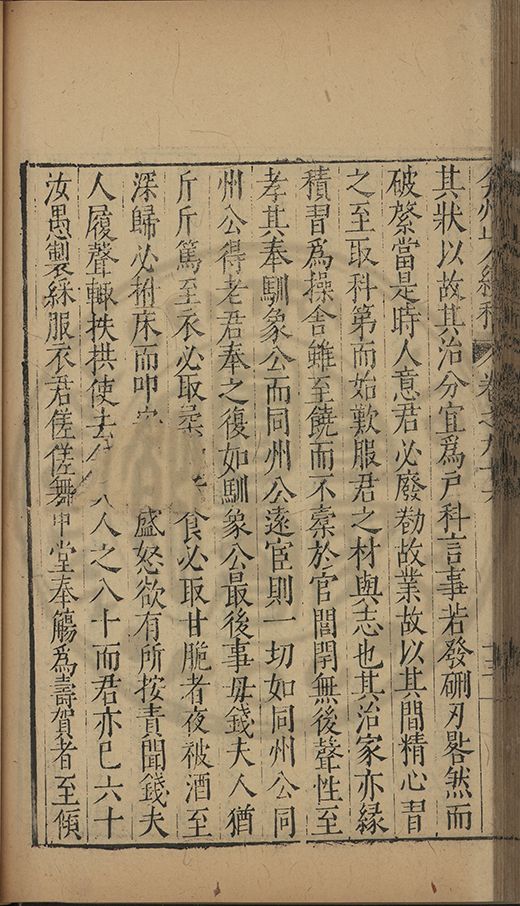 弇州山人續稿 卷之九十六 十二
其狀以故其治分宜爲戸科言事若發硎刃畧然而
破綮當是時人意君必廢勌故業故以其間精心習
之至取科第而始歎服君之材與志也其治家亦緣
積習爲操舍雖至饒而不橐於官閨閈無後聲性至
孝其奉馴象公而同州公遠宦則一切如同州公同
州公得老君奉之復如馴象公最後事母錢夫人猶
斤斤篤至衣必取柔 食必取甘脆者夜被酒至
深歸必拊床而叩 盛怒欲有所按責聞錢夫
人履聲輙抶拱使去 人之八十而君亦已六十
汝愚製綵服衣君傞傞舞中堂奉觴爲壽賀者至傾